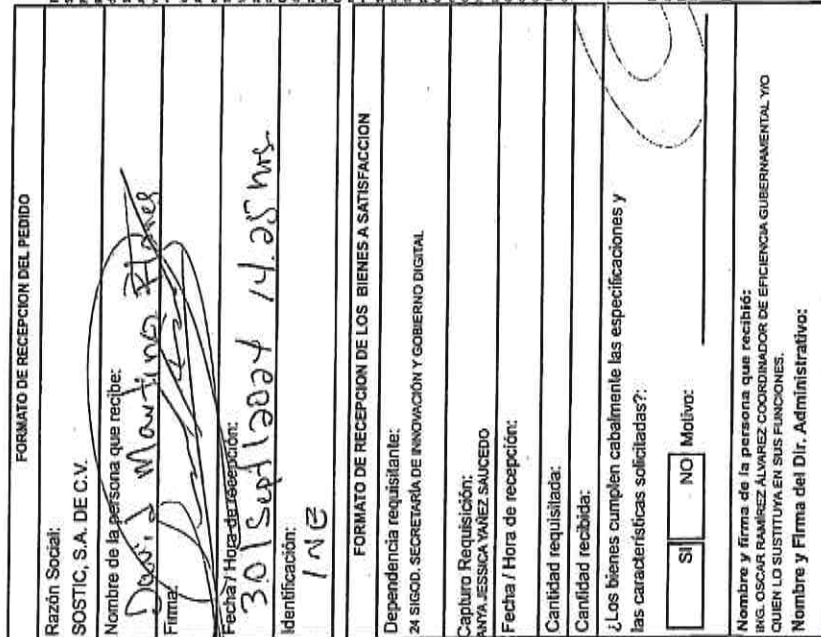 FORMATO DE RECEPCION DEL PEDIDO
Razón Social:
SOSTIC, S.A. DE C.V.
Nombre de la persona que recibe:
David Martinez Flores
Firma:
Fecha / Hora de recepción:
30/Sept/2024 14:25 hrs
Identificación:
INE
FORMATO DE RECEPCION DE LOS BIENES A SATISFACCION
Dependencia requisitante:
24 SIGOD. SECRETARÍA DE INNOVACIÓN Y GOBIERNO DIGITAL
Capturo Requisición:
ANYA JESSICA YAÑEZ SAUCEDO
Fecha / Hora de recepción:
Cantidad requisitada:
Cantidad recibida:
¿Los bienes cumplen cabalmente las especificaciones y
las características solicitadas?:
SI NO Motivo:
Nombre y firma de la persona que recibió:
ING. OSCAR RAMÍREZ ÁLVAREZ COORDINADOR DE EFICIENCIA GUBERNAMENTAL Y/O
QUIEN LO SUSTITUYA EN SUS FUNCIONES.
Nombre y Firma del Dir. Administrativo: